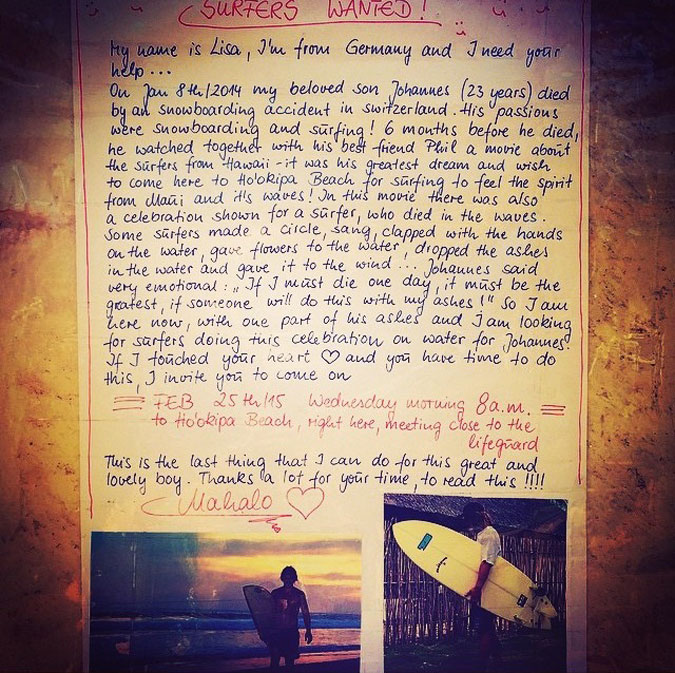 SURFERS WANTED!
My name is Lisa, I'm from Germany and I need your
help...
On Jan 8th/2014 my beloved son Johannes (23 years) died
by an snowboarding accident in switzerland. His passions
were snowboarding and surfing! 6 months before he died,
he watched together with his best friend Phil a movie about
the surfers from Hawaii - it was his greatest dream and wish
to come here to Ho'okipa Beach for surfing to feel the spirit
from Maui and it's waves! In this movie there was also
a celebration shown for a surfer, who died in the waves.
Some surfers made a circle, sang, clapped with the hands
on the water, gave flowers to the water, dropped the ashes
in the water and gave it to the wind... Johannes said
very emotional: „If I must die one day, it must be the
gratest, if someone will do this with my ashes!" So I am
here now, with one part of his ashes and I am looking
for surfers doing this celebration on water for Johannes.
If I touched your heart ♡ and you have time to do
this, I invite you to come on
FEB 25th/15 Wednesday morning 8a.m.
to Ho'okipa Beach, right here, meeting close to the
lifeguard
This is the last thing that I can do for this great and
lovely boy. Thanks a lot for your time, to read this !!!!
Mahalo ♡